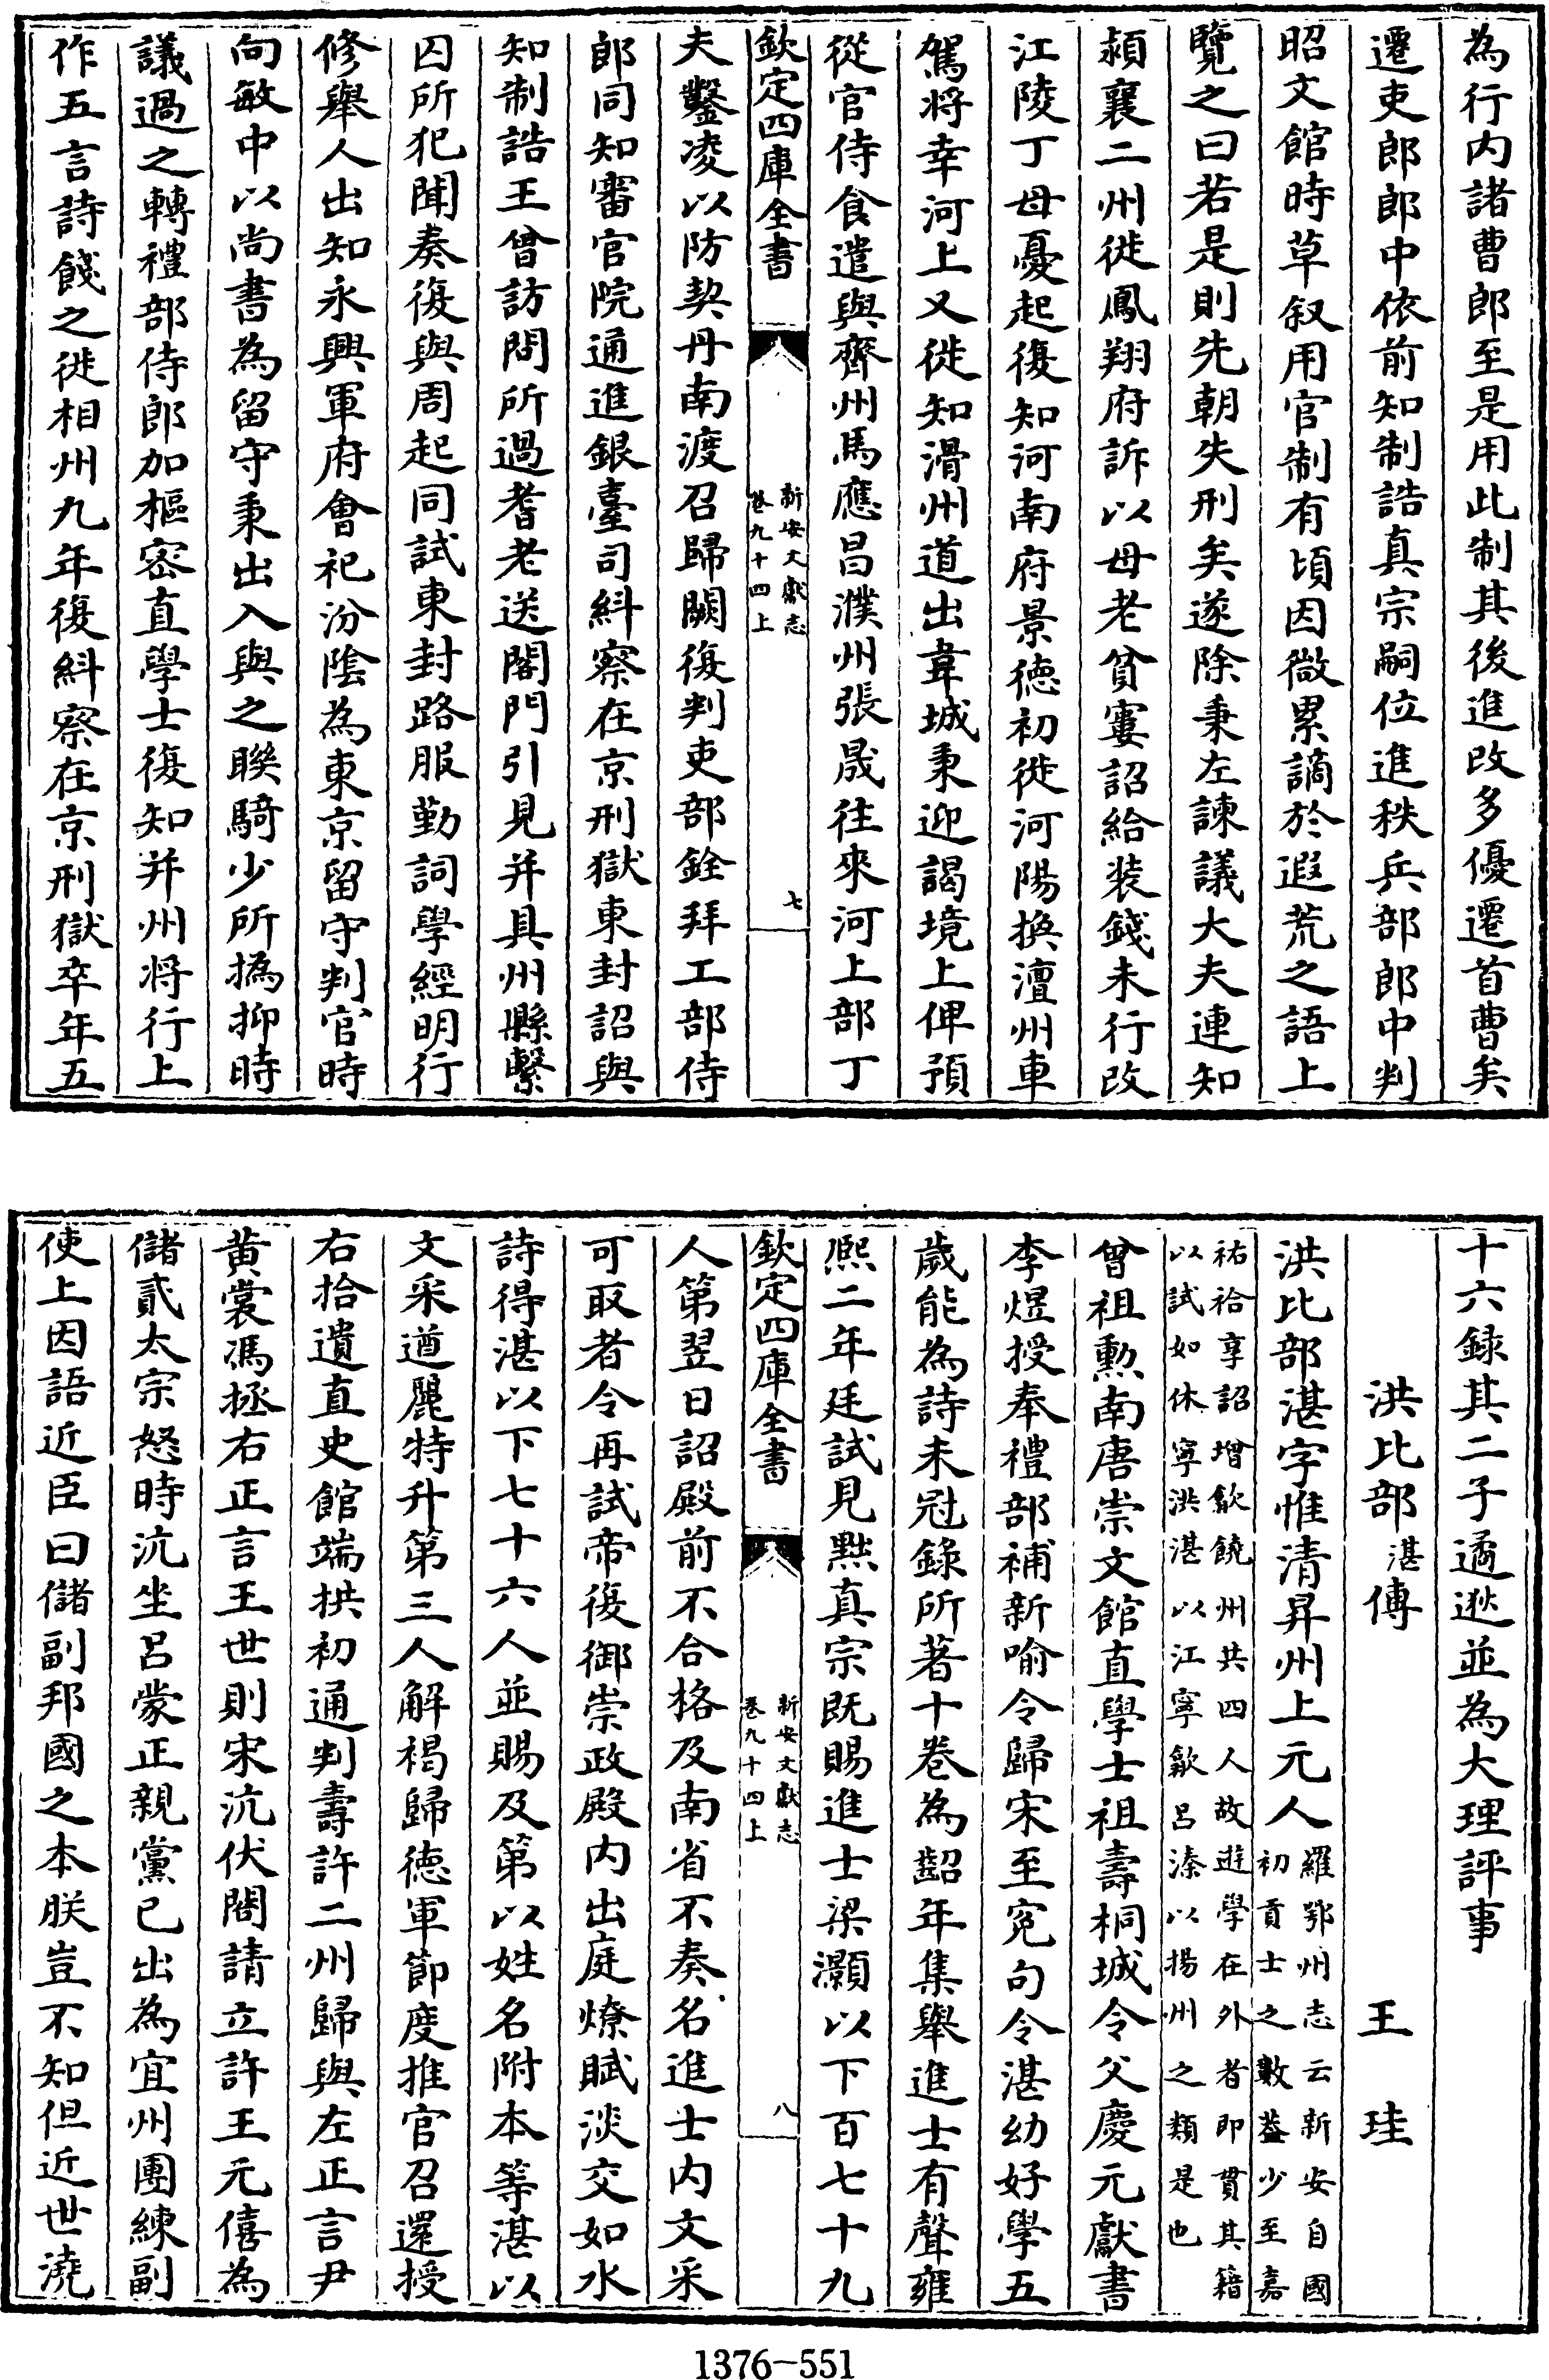 為行内諸曹郎至是用此制其後進改多優遷首曹矣
遷吏郎郎中依前知制誥真宗嗣位進秩兵部郎中判
昭文館時草叙用官制有頃因微累謫於遐荒之語上
覽之曰若是則先朝失刑矣遂除秉左諫議大夫連知
潁襄二州徙鳳翔府訴以母老貧窶詔給装錢未行改
江陵丁母憂起復知河南府景徳初徙河陽換澶州車
駕将幸河上又徙知滑州道出韋城秉迎謁境上俾預
從官侍食遣與齊州馬應昌濮州張晟往來河上部丁
欽定四庫全書
新安文獻志
卷九十四上
七
夫鑿凌以防契丹南渡召歸闕復判吏部銓拜工部侍
郎同知審官院通進銀臺司糾察在京刑獄東封詔與
知制誥王曾訪問所過耆老送閤門引見并具州縣繫
囚所犯聞奏復與周起同試東封路服勤詞學經明行
修舉人出知永興軍府會祀汾陰為東京留守判官時
向敏中以尚書為留守秉出入與之聮騎少所撝抑時
議過之轉禮部侍郎加樞密直學士復知并州将行上
作五言詩餞之徙相州九年復糾察在京刑獄卒年五
十六録其二子遹逖並為大理評事
洪比部湛傳　王珪
洪比部湛字惟清昇州上元人羅鄂州志云新安自國
初貢士之數葢少至嘉
祐祫享詔增歙饒州共四人故遊學在外者即貫其籍
以試如休寧洪湛以江寧歙呂溱以揚州之類是也
曾祖勲南唐崇文館直學士祖壽桐城令父慶元獻書
李煜授奉禮部補新喻令歸宋至寃句令湛幼好學五
歲能為詩未冠錄所著十卷為齠年集舉進士有聲雍
熈二年廷試見黜真宗既賜進士梁灝以下百七十九
欽定四庫全書
新安文獻志
卷九十四上
八
人第翌日詔殿前不合格及南省不奏名進士内文采
可取者令再試帝復御崇政殿内出庭燎賦淡交如水
詩得湛以下七十六人並賜及第以姓名附本等湛以
文采遒麗特升第三人解褐歸徳軍節度推官召還授
右拾遺直史館端拱初通判壽許二州歸與左正言尹
黄裳馮拯右正言王世則宋沆伏閤請立許王元僖為
儲貳太宗怒時沆坐呂蒙正親黨已出為宜州團練副
使上因語近臣曰儲副邦國之本朕豈不知但近世澆
1376-551